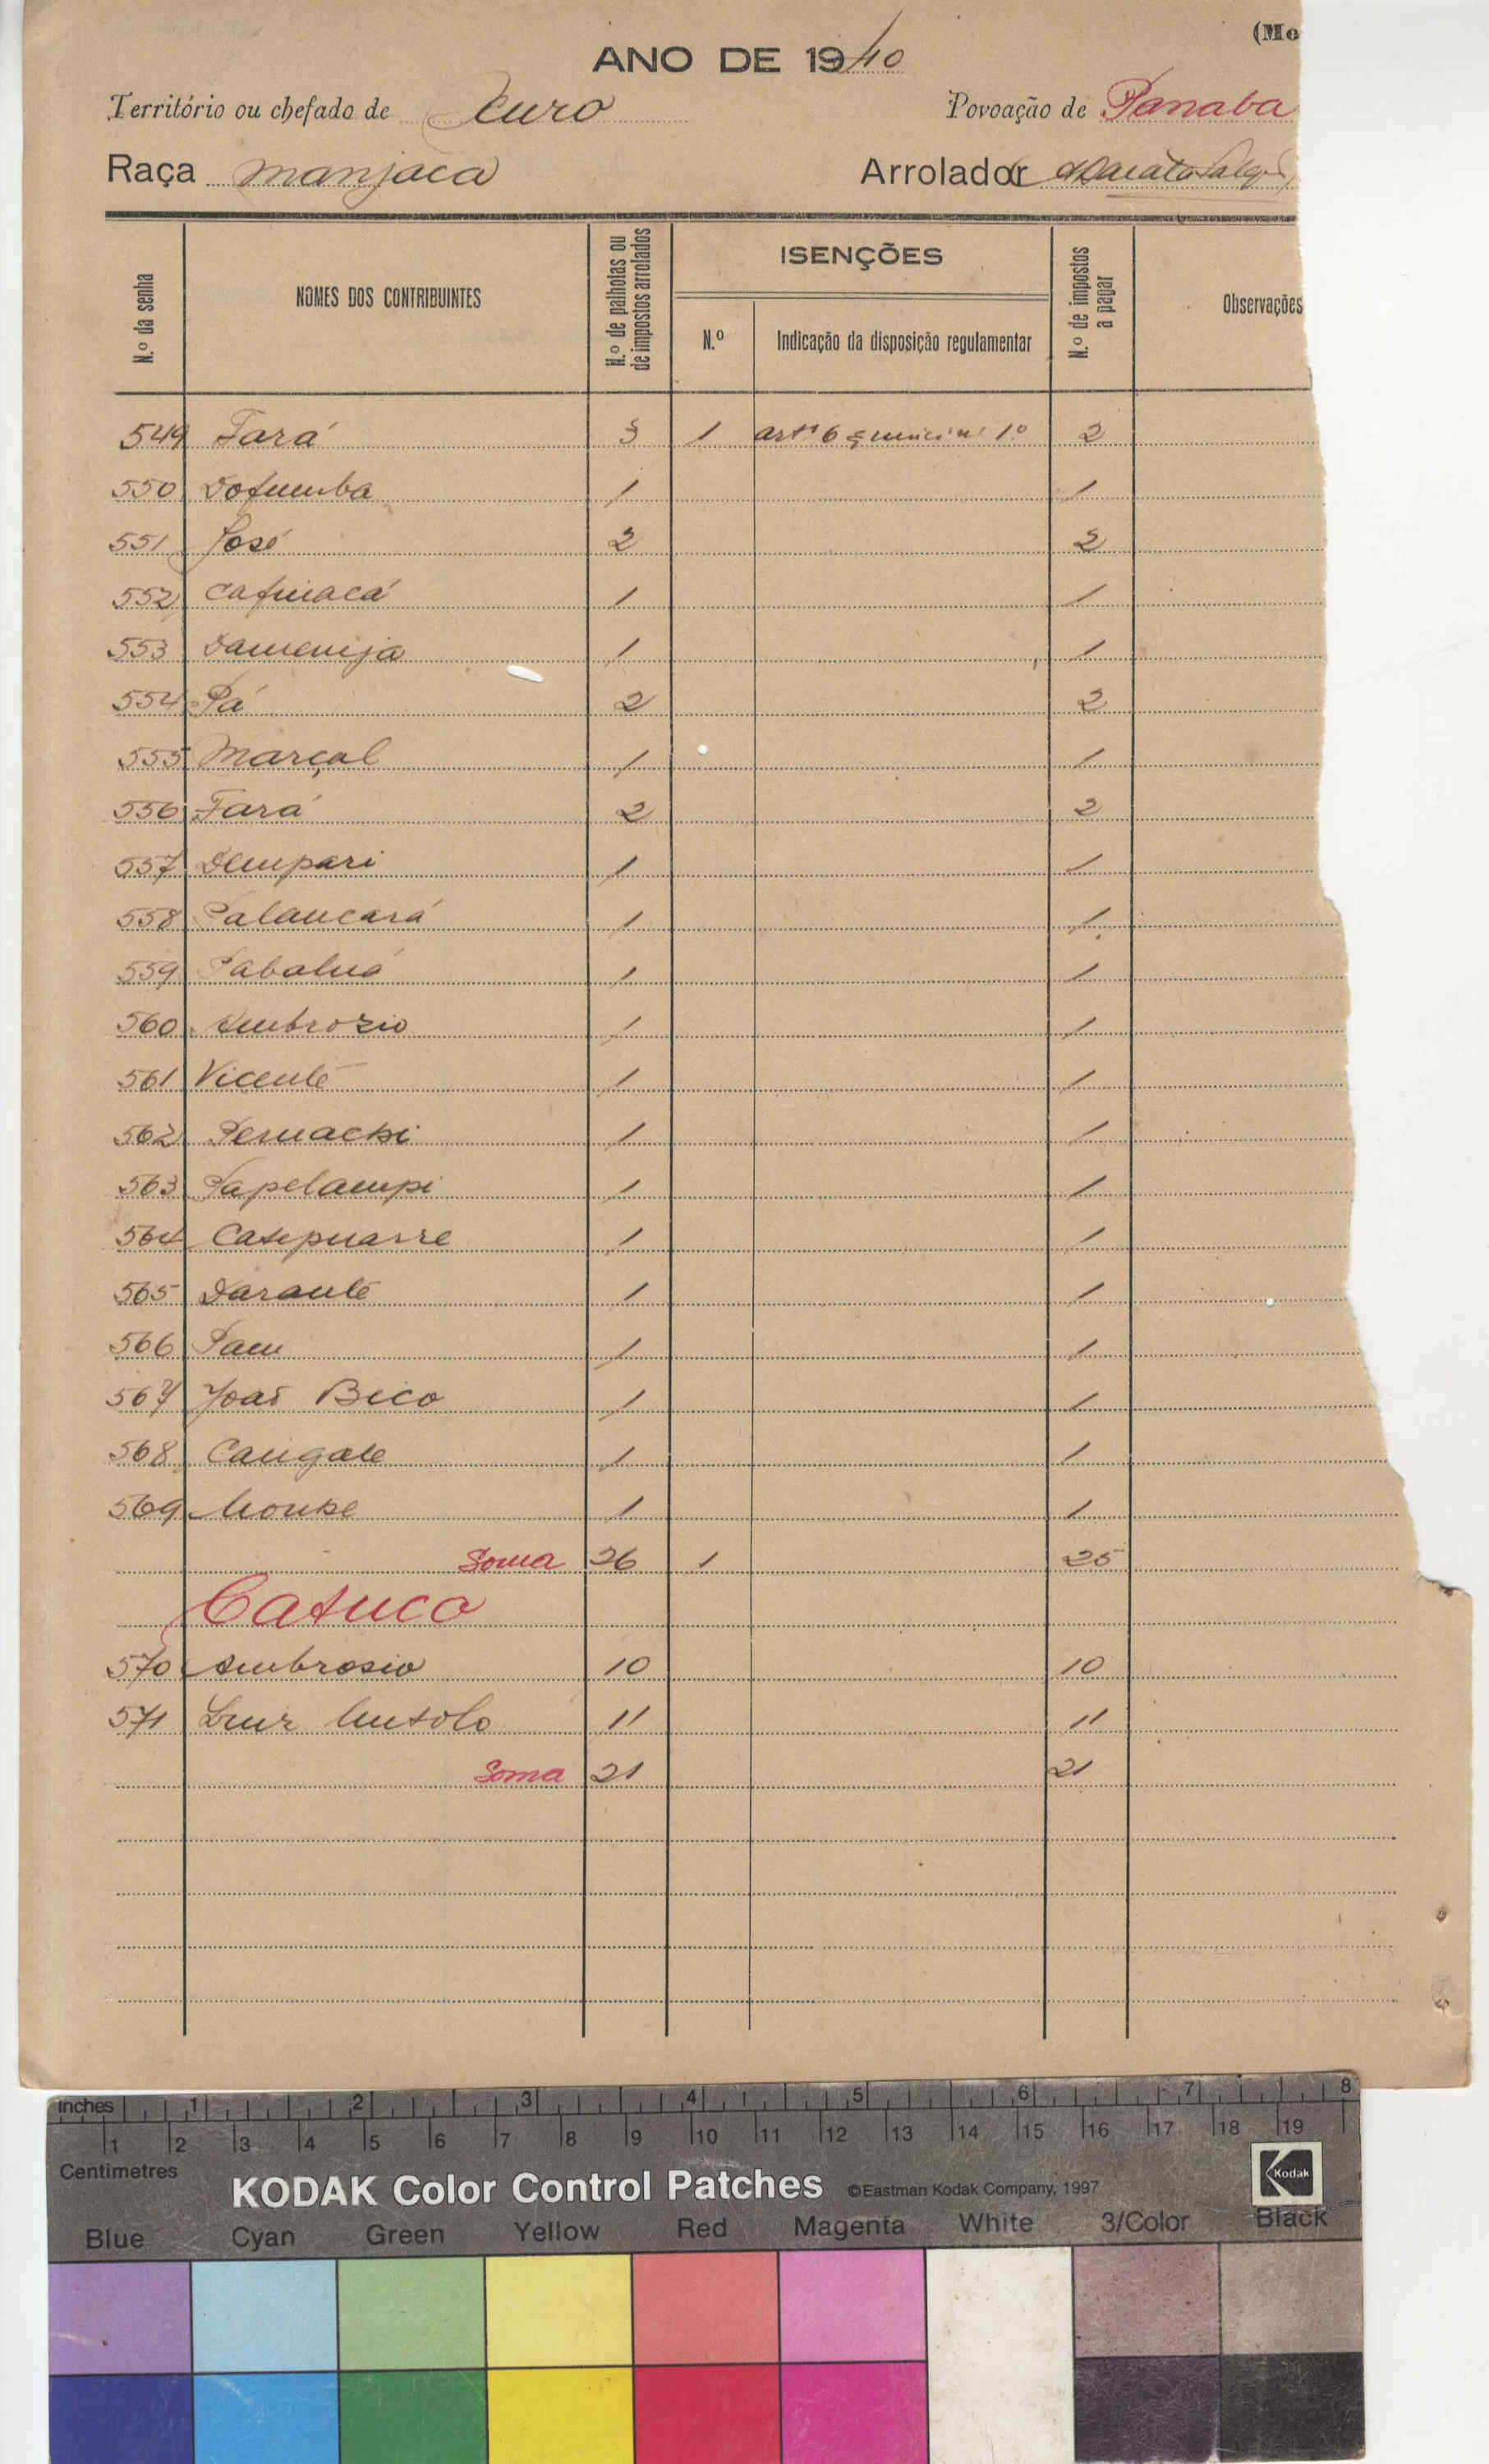 (Mo
ANO DE 1940
Território ou chefado de Churo Povoação de Panaba
Raça Manjaca Arrolador
N.º da senha NOMES DOS CONTRIBUINTES N.º de palhotas ou de impostos arrolados ISENÇÕES N.º Indicação da disposição regulamentar N.º de impostos a pagar Observações
549 Fará 3 1 artº 6 1º 2
550 1 1
551 José 2 2
552 1 1
553 1 1
554 Pá 2 2
555 Marçal 1 1
556 Fará 2 2
557 Dempari 1 1
558 Palancará 1 1
559 1 1
560 Ambrozio 1 1
561 Vicente 1 1
562 1 1
563 Papelampi 1 1
564 1 1
565 1 1
566 Pam 1 1
567 João Bico 1 1
568 Cangale 1 1
569 1 1
Soma 26 1 25
570 Ambrosio 10 10
571 11 11
Soma 21 21
inches 1 2 3 4 5 6 7 8
1 2 3 4 5 6 7 8 9 10 11 12 13 14 15 16 17 18 19
Centimetres
KODAK Color Control Patches ©Eastman Kodak Company, 1997 Kodak
Blue Cyan Green Yellow Red Magenta White 3/Color Black